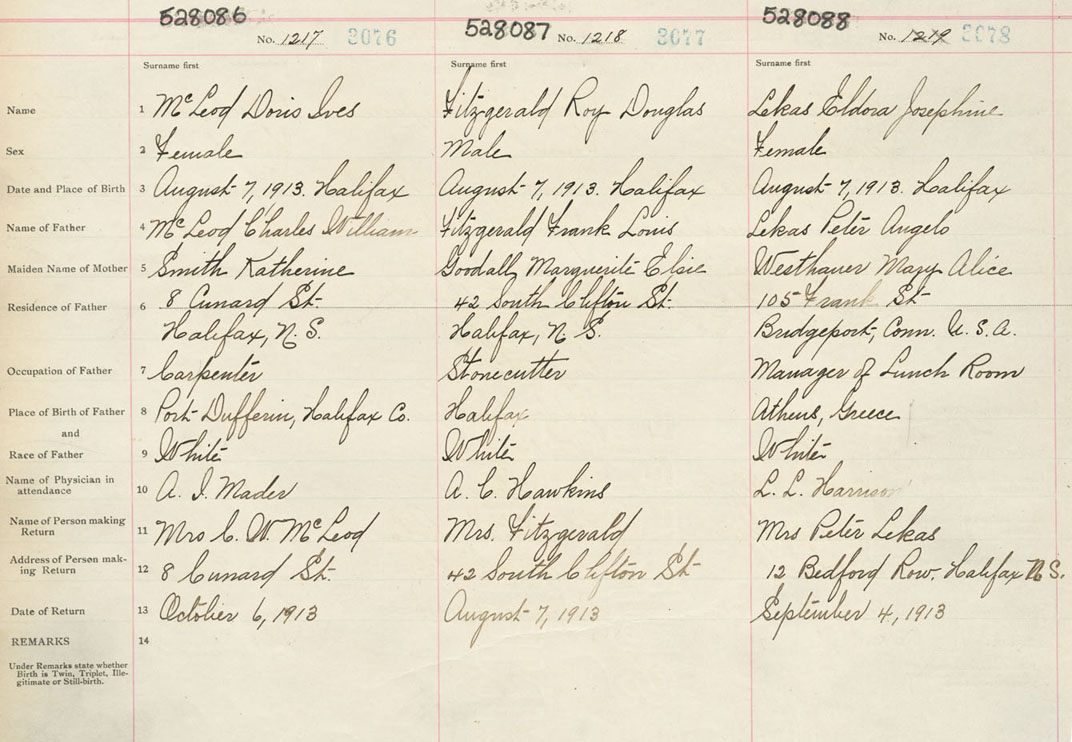 528086 528087 528088
No. 1217 3076 No. 1218 3077 No. 1219 3078
Surname first Surname first Surname first
Name 1 McLeod Doris Ives Fitzgerald Roy Douglas Lekas Eldora Josephine
Sex 2 Female Male Female
Date and Place of Birth 3 August 7, 1913. Halifax August 7, 1913. Halifax August 7, 1913. Halifax
Name of Father 4 McLeod Charles William Fitzgerald Frank Louis Lekas Peter Angelo
Maiden Name of Mother 5 Smith Katherine Goodall, Marguerite Elsie Westhaver Mary Alice
Residence of Father 6 8 Cunard St. 42 South Clifton St. 105 Frank St
Halifax, N. S. Halifax, N. S. Bridgeport, Conn. U. S. A.
Occupation of Father 7 Carpenter Stonecutter Manager of Lunch Room
Place of Birth of Father 8 Port Dufferin, Halifax Co. Halifax Athens, Greece
and
Race of Father 9 White White White
Name of Physician in
attendance 10 A. I. Mader A. C. Hawkins L. L. Harrison
Name of Person making
Return 11 Mrs C. W. McLeod Mrs. Fitzgerald Mrs Peter Lekas
Address of Person mak-
ing Return 12 8 Cunard St. 42 South Clifton St 12 Bedford Row. Halifax N S.
Date of Return 13 October 6, 1913 August 7, 1913 September 4, 1913
REMARKS 14
Under Remarks state whether
Birth is Twin, Triplet, Ille-
gitimate or Still-birth.